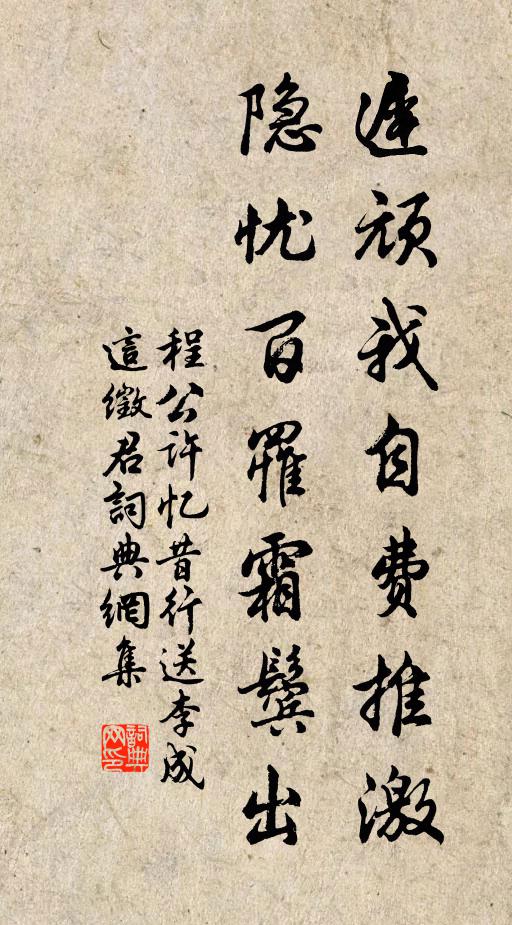 遲頑我自费推激
隐忧百罹霜鬓出
程公许忆昔行送李成
這徵君詞典網集
詞典网印